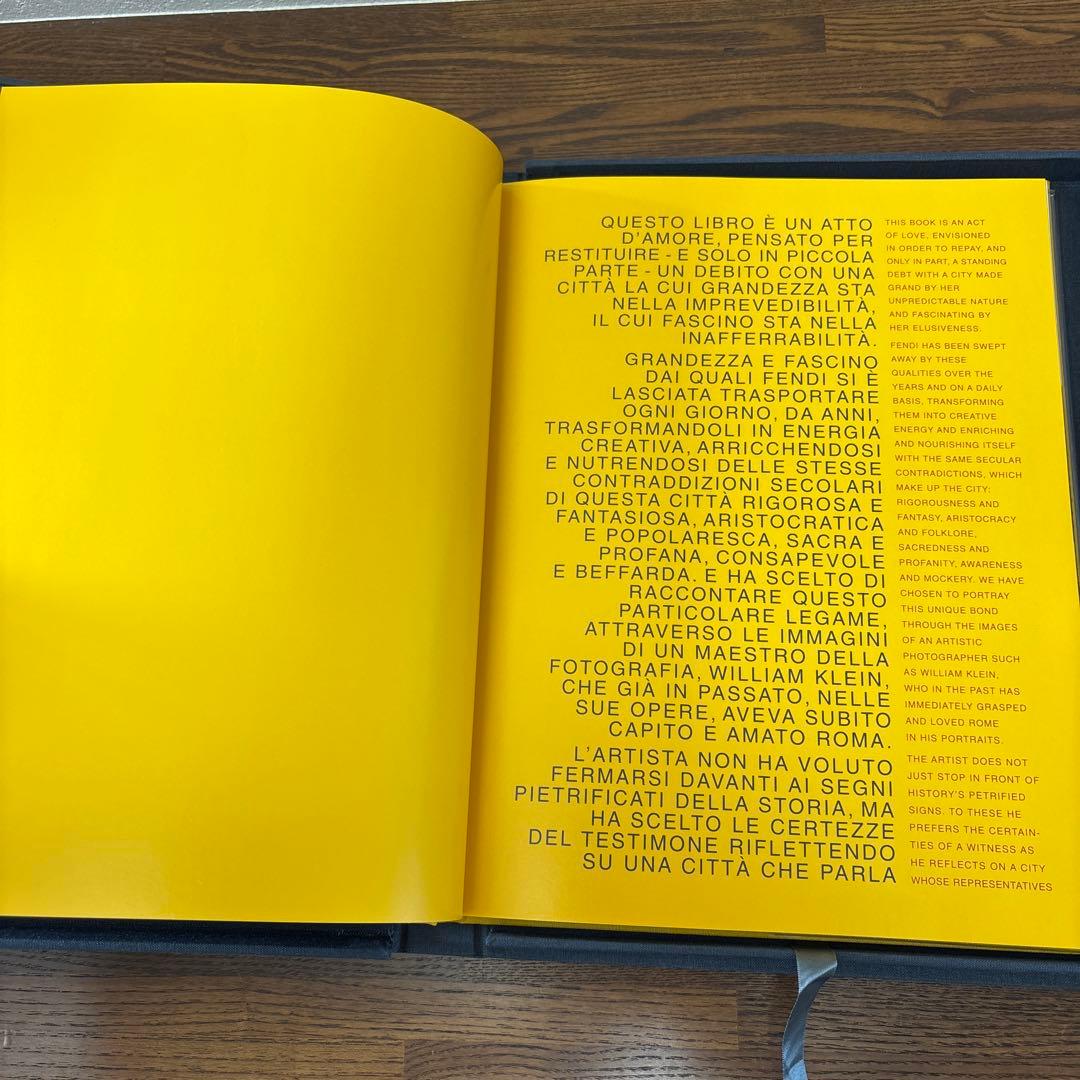 QUESTO LIBRO È UN ATTO
D'AMORE, PENSATO PER
RESTITUIRE - E SOLO IN PICCOLA
PARTE - UN DEBITO CON UNA
CITTÀ LA CUI GRANDEZZA STA
NELLA IMPREVEDIBILITÀ,
IL CUI FASCINO STA NELLA
INAFFERRABILITÀ.
GRANDEZZA E FASCINO
DAI QUALI FENDI SI È
LASCIATA TRASPORTARE
OGNI GIORNO, DA ANNI,
TRASFORMANDOLI IN ENERGIA
CREATIVA, ARRICCHENDOSI
E NUTRENDOSI DELLE STESSE
CONTRADDIZIONI SECOLARI
DI QUESTA CITTÀ RIGOROSA E
FANTASIOSA, ARISTOCRATICA
E POPOLARESCA, SACRA E
PROFANA, CONSAPEVOLE
E BEFFARDA. E HA SCELTO DI
RACCONTARE QUESTO
PARTICOLARE LEGAME,
ATTRAVERSO LE IMMAGINI
DI UN MAESTRO DELLA
FOTOGRAFIA, WILLIAM KLEIN,
CHE GIÀ IN PASSATO, NELLE
SUE OPERE, AVEVA SUBITO
CAPITO E AMATO ROMA.
L'ARTISTA NON HA VOLUTO
FERMARSI DAVANTI AI SEGNI
PIETRIFICATI DELLA STORIA, MA
HA SCELTO LE CERTEZZE
DEL TESTIMONE RIFLETTENDO
SU UNA CITTÀ CHE PARLA
THIS BOOK IS AN ACT
OF LOVE, ENVISIONED
IN ORDER TO REPAY, AND
ONLY IN PART, A STANDING
DEBT WITH A CITY MADE
GRAND BY HER
UNPREDICTABLE NATURE
AND FASCINATING BY
HER ELUSIVENESS.
FENDI HAS BEEN SWEPT
AWAY BY THESE
QUALITIES OVER THE
YEARS AND ON A DAILY
BASIS, TRANSFORMING
THEM INTO CREATIVE
ENERGY AND ENRICHING
AND NOURISHING ITSELF
WITH THE SAME SECULAR
CONTRADICTIONS, WHICH
MAKE UP THE CITY:
RIGOROUSNESS AND
FANTASY, ARISTOCRACY
AND FOLKLORE,
SACREDNESS AND
PROFANITY, AWARENESS
AND MOCKERY. WE HAVE
CHOSEN TO PORTRAY
THIS UNIQUE BOND
THROUGH THE IMAGES
OF AN ARTISTIC
PHOTOGRAPHER SUCH
AS WILLIAM KLEIN,
WHO IN THE PAST HAS
IMMEDIATELY GRASPED
AND LOVED ROME
IN HIS PORTRAITS.
THE ARTIST DOES NOT
JUST STOP IN FRONT OF
HISTORY'S PETRIFIED
SIGNS. TO THESE HE
PREFERS THE CERTAIN-
TIES OF A WITNESS AS
HE REFLECTS ON A CITY
WHOSE REPRESENTATIVES